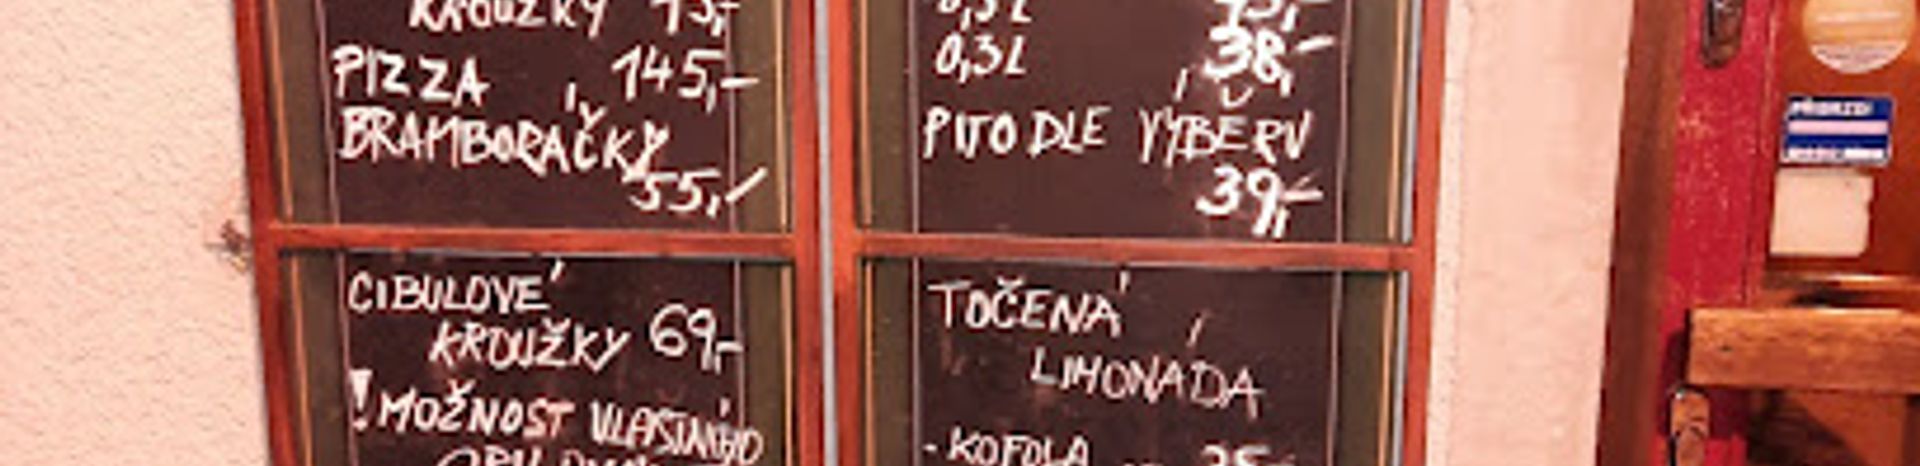 KROUŽKY
PIZZA 145,-
BRAMBORÁČKY
55,-
CIBULOVÉ
KROUŽKY 69,-
! MOŽNOST VLASTNÍHO
0,3L 38,-
PITO DLE VÝBĚRU
39,-
TOČENÁ
LIMONÁDA
- KOFOLA